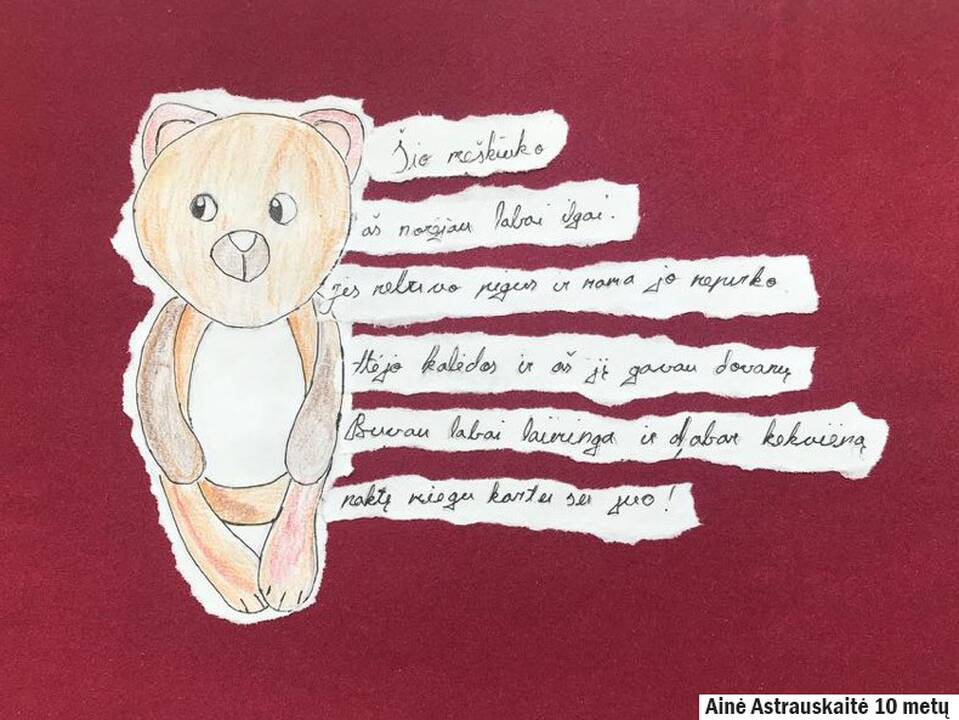 Šio meškiuko
aš norėjau labai ilgai.
jis nebuvo pigus ir mama jo nepirko
Atėjo kalėdos ir aš jį gavau dovanų
Buvau labai laiminga ir dabar kekvieną
naktį miegu kartu su juo!
Ainė Astrauskaitė 10 metų